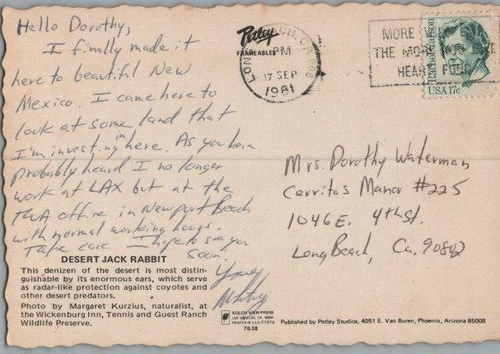 Hello Dorothy,
I finally made it
here to beautiful New
Mexico. I came here to
look at some land that
I'm investing in here. As you have
probably heard I no longer
work at LAX but at the
TWA office in Newport Beach
with normal working hours.
Take care I hope to see you
soon.
Petley
FRAMEABLES
LONG BEACH, CA
PM
17 SEP
1981
MORE
THE MORE
HEART FUND
Rachel Carson
USA 17c
Mrs. Dorothy Waterman
Cerritos Manor #225
1046 E. 4th St.
Long Beach, Ca. 90802
DESERT JACK RABBIT
This denizen of the desert is most distin-
guishable by its enormous ears, which serve
as radar-like protection against coyotes and
other desert predators.
Photo by Margaret Kurzius, naturalist, at
the Wickenburg Inn, Tennis and Guest Ranch
Wildlife Preserve.
7638
Published by Petley Studios, 4051 E. Van Buren, Phoenix, Arizona 85008